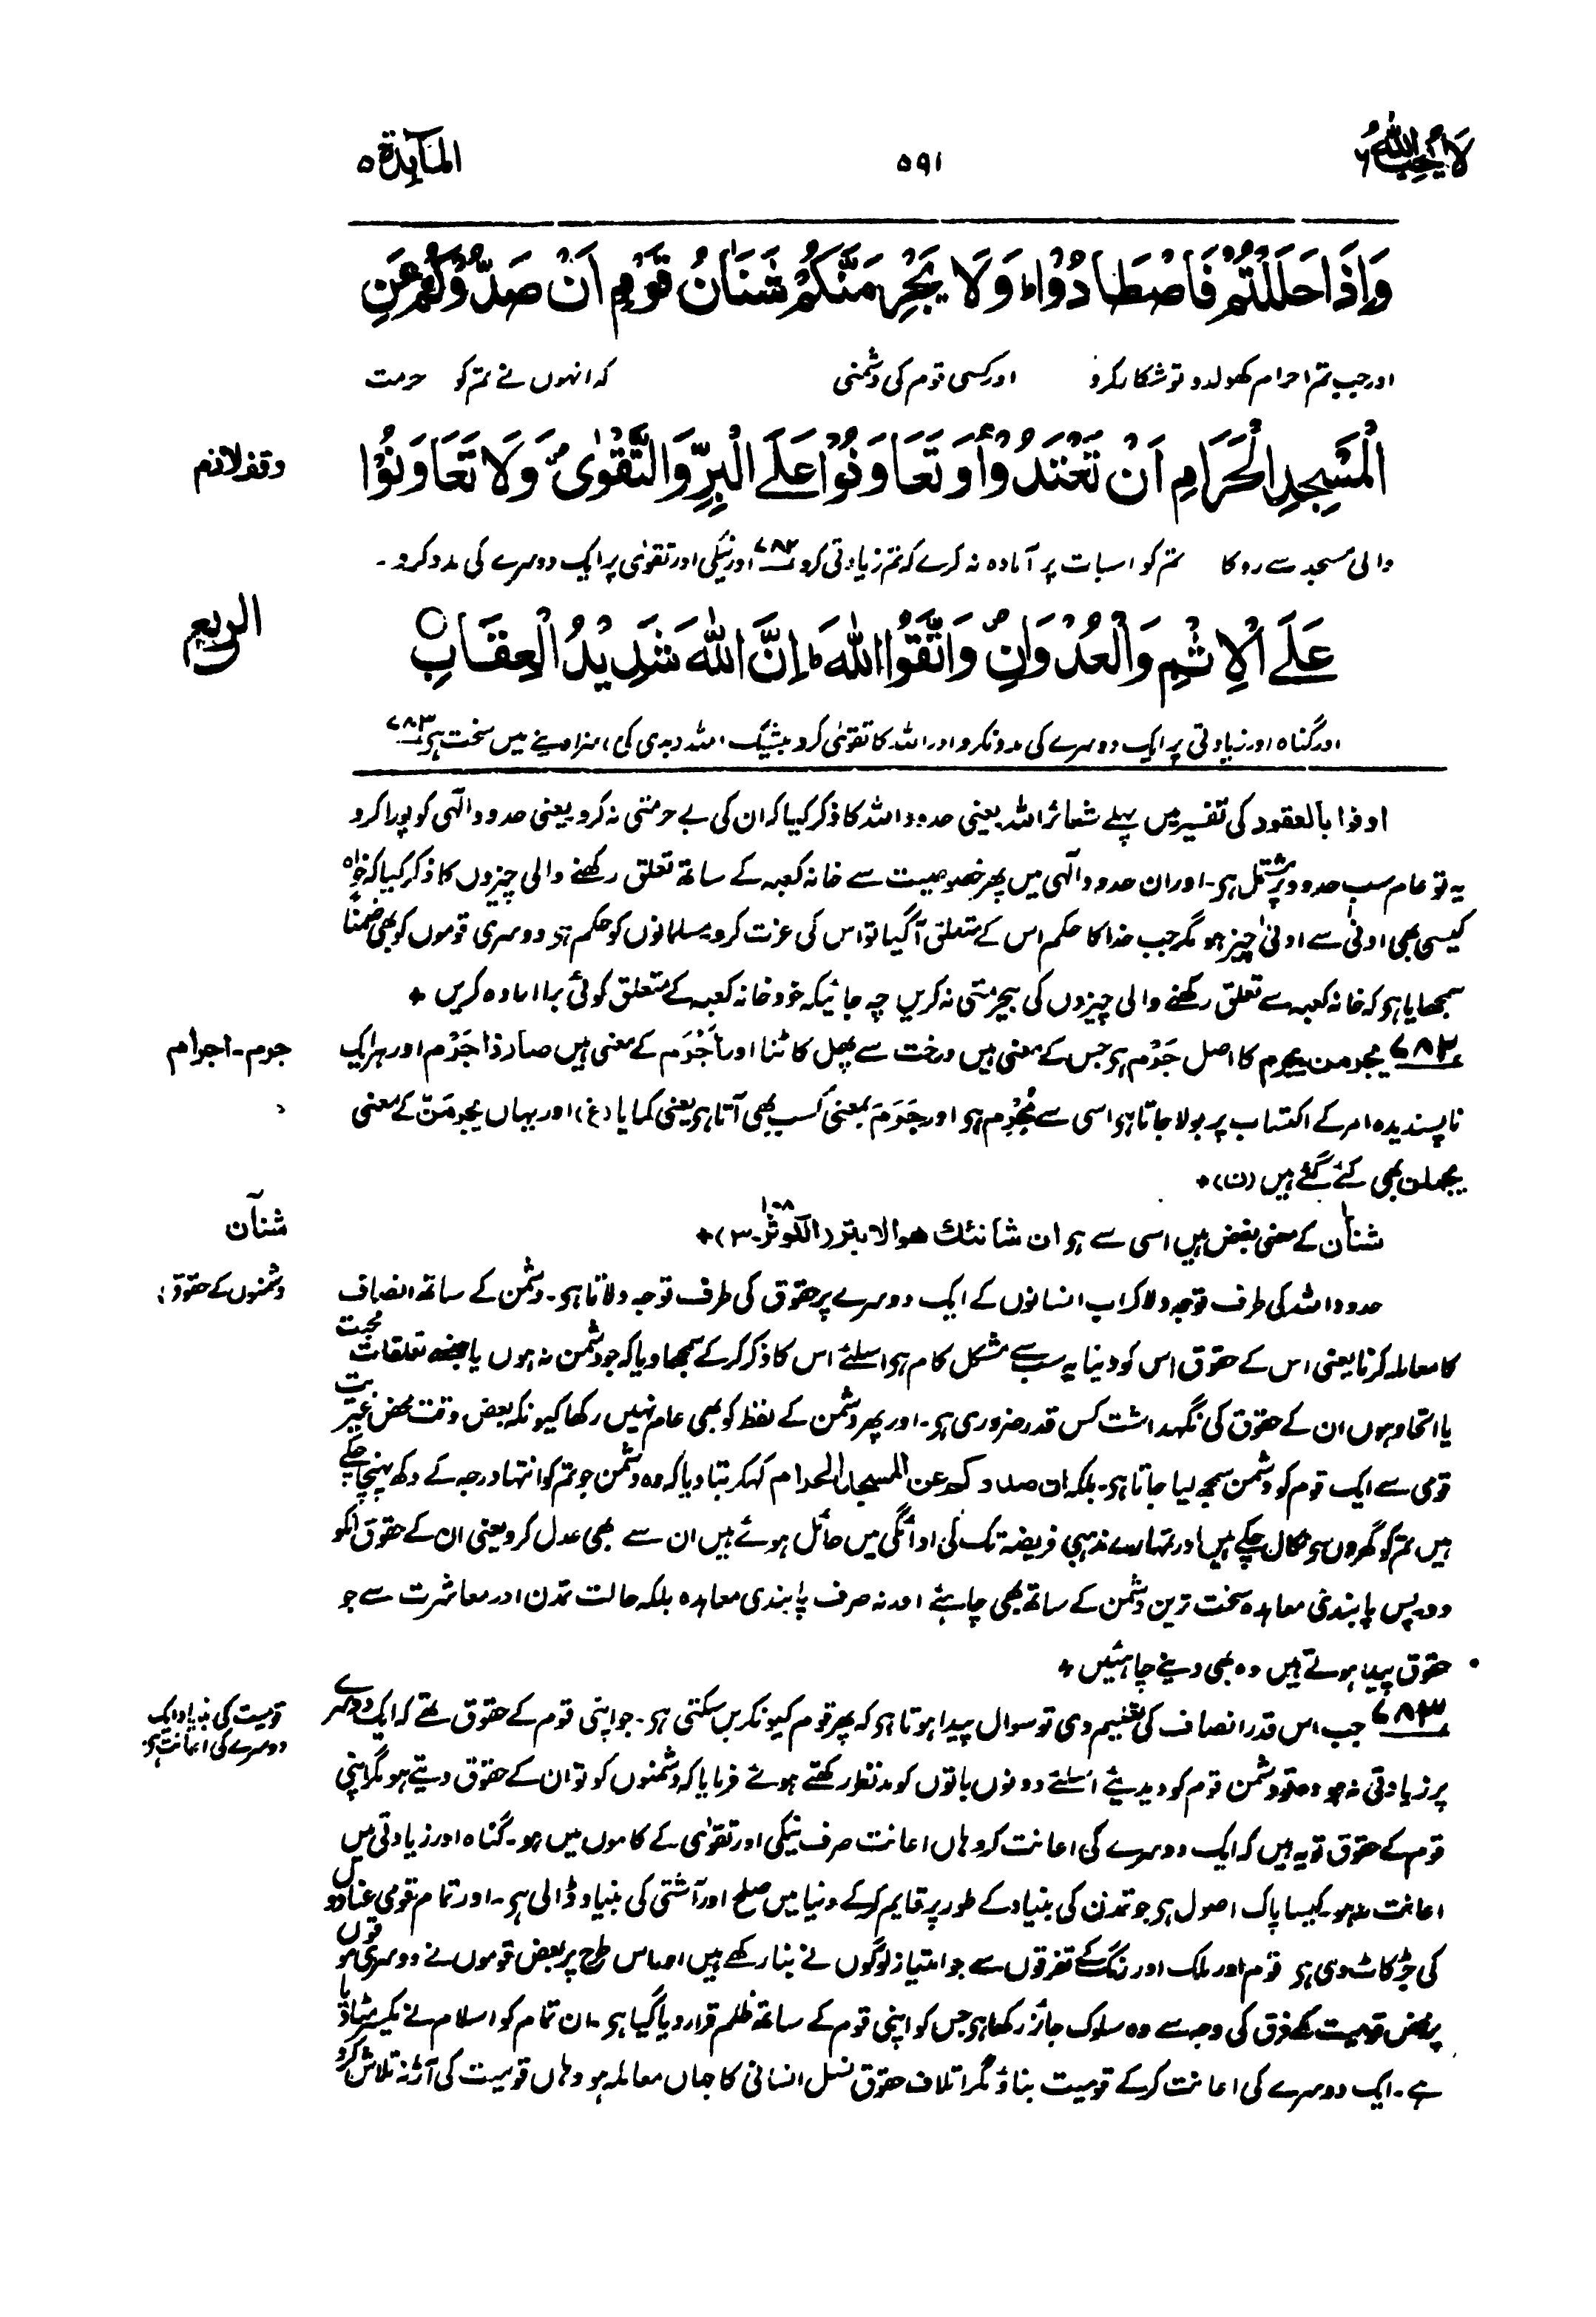 لَا يُحِبُّ اللّٰهُ ٦
۵۹۱
المآئدة ۵
وَاِذَا حَلَلْتُمْ فَاصْطَادُوْا ؕ وَلَا يَجْرِمَنَّكُمْ شَنَاٰنُ قَوْمٍ اَنْ صَدُّوْكُمْ عَنِ
اور جب تم احرام کھولدو تو شکار کرو اور کسی قوم کی دشمنی کہ انہوں نے تم کو حرمت
الْمَسْجِدِ الْحَرَامِ اَنْ تَعْتَدُوْا ۘ وَتَعَاوَنُوْا عَلَى الْبِرِّ وَالتَّقْوٰى ۪ وَلَا تَعَاوَنُوْا
وقف لازم
والی مسجد سے روکا تم کو اسبات پر آمادہ نہ کرے کہ تم زیادتی کرو ۷۸۲ اور نیکی اور تقویٰ پر ایک دوسرے کی مدد کرو۔
عَلَى الْاِثْمِ وَالْعُدْوَانِ ۪ وَاتَّقُوا اللّٰهَ ؕ اِنَّ اللّٰهَ شَدِيْدُ الْعِقَابِ ○
الربع
اور گناہ اور زیادتی پر ایک دوسرے کی مدد نکرو اور اللہ کا تقویٰ کرو بیشک اللہ (بدی کی) سزا دینے میں سخت ہو ۷۸۳
اوفوا بالعقود کی تفسیر میں پہلے شعائر اللہ یعنی حدود اللہ کا ذکر کیا کہ ان کی بے حرمتی نہ کرو یعنی حدود الٰہی کو پورا کرو
یہ تو عام سب حدود پر مشتمل ہو۔ اور ان حدود الٰہی میں پھر خصوصیت سے خانہ کعبہ کے ساتھ تعلق رکھنے والی چیزوں کا ذکر کیا کہ خواہ
کیسی بھی ادنیٰ سے ادنیٰ چیز ہو مگر جب خدا کا حکم اس کے متعلق آگیا تو اس کی عزت کرو۔ مسلمانوں کو حکم ہو دوسری قوموں کو بھی ضمناً
سمجھایا ہو کہ خانہ کعبہ سے تعلق رکھنے والی چیزوں کی بیحرمتی نہ کریں چہ جائیکہ خود خانہ کعبہ کے متعلق کوئی برا ارادہ کریں +
۷۸۲ یجرمن۔ جرم کا اصل جَرْم ہو جس کے معنی ہیں درخت سے پھل کاٹنا اور اَجْرَم کے معنی ہیں صار ذا جَرْم اور ہر ایک
جرم۔ اجرام
ناپسندیدہ امر کے اکتساب پر بولا جاتا ہو اسی سے مُجْرِم ہو اور جَرَمَ بمعنی کسب بھی آتا ہو یعنی کمایا (غ) اور یہاں یجرمنّ کے معنی
یحملن بھی کئے گئے ہیں (ن) +
شناٰن کے معنی بغض ہیں اسی سے ہو ان شانئك هو الابتر (الکوثر ۱۰۸۔ ۳) +
شنآن
حدود اللہ کی طرف توجہ دلا کر اب انسانوں کے ایک دوسرے پر حقوق کی طرف توجہ دلاتا ہو۔ دشمن کے ساتھ انصاف
دشمنوں کے حقوق
کا معاملہ کرنا یعنی اس کے حقوق اس کو دینا یہ سب سے مشکل کام ہو اسلئے اس کا ذکر کر کے سمجھا دیا کہ جو دشمن نہ ہوں یا جنسے تعلقات محبت
یا اتحاد ہوں ان کے حقوق کی نگہداشت کس قدر ضروری ہو۔ اور پھر دشمن کے لفظ کو بھی عام نہیں رکھا کیونکہ بعض وقت محض غیریت
قومی سے ایک قوم کو دشمن سمجھ لیا جاتا ہو۔ بلکہ ان صدوکم عن المسجد الحرام کہکر بتا دیا کہ وہ دشمن جو تم کو انتہا درجہ کے دکھ پہنچا چکے
ہیں تم کو گھروں سے نکال چکے ہیں اور تمہارے مذہبی فریضہ تک کی ادائگی میں حائل ہوئے ہیں ان سے بھی عدل کرو یعنی ان کے حقوق انکو
دو۔ پس پابندی معاہدہ سخت ترین دشمن کے ساتھ بھی چاہئے اور نہ صرف پابندی معاہدہ بلکہ حالت تمدن اور معاشرت سے جو
حقوق پیدا ہوتے ہیں وہ بھی دینے چاہئیں +
۷۸۳ جب اس قدر انصاف کی تعلیم دی تو سوال پیدا ہوتا ہو کہ پھر قوم کیونکر بن سکتی ہو۔ جو اپنی قوم کے حقوق تھے کہ ایک دوسرے
قومیت کی بنیاد ایک
دوسرے کی اعانت ہو
پر زیادتی نہ ہو وہ تو دشمن قوم کو دیدیئے اسلئے دونوں باتوں کو مدنظر رکھتے ہوئے فرمایا کہ دشمنوں کو تو ان کے حقوق دیتے ہو مگر اپنی
قوم کے حقوق تو یہ ہیں کہ ایک دوسرے کی اعانت کرو ہاں اعانت صرف نیکی اور تقویٰ کے کاموں میں ہو۔ گناہ اور زیادتی میں
اعانت نہ ہو۔ کیسا پاک اصول ہو جو تمدن کی بنیاد کے طور پر قایم کر کے دنیا میں صلح اور آشتی کی بنیاد ڈالی ہو۔ اور تمام قومی عنادوں
کی جڑ کاٹ دی ہو قوم اور ملک اور رنگ کے تفرقوں سے جو امتیاز لوگوں نے بنا رکھے ہیں اور اس طرح پر بعض قوموں نے دوسری قوموں
پر محض قومیت کے فرق کی وجہ سے وہ سلوک جائز رکھا ہو جس کو اپنی قوم کے ساتھ ظلم قرار دیا گیا ہو۔ ان تمام کو اسلام نے یکسر مٹا دیا
ہے۔ ایک دوسرے کی اعانت کر کے قومیت بناؤ مگر اتلاف حقوق نسل انسانی کا جہاں معاملہ ہو وہاں قومیت کی آڑ نہ تلاش کرو